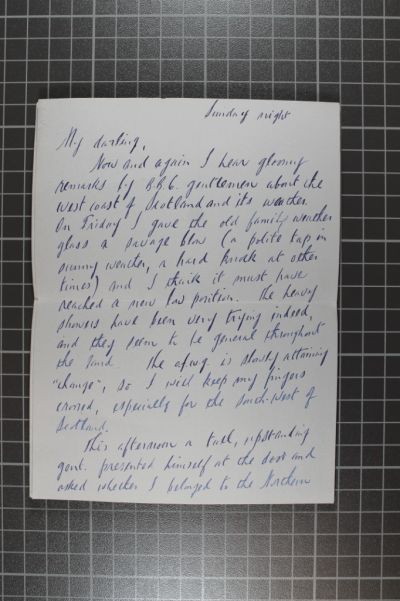 Sunday night
My darling,
Now and again I hear gloomy
remarks by B.B.C. gentlemen about the
west coast of Scotland and its weather.
On Friday I gave the old family weather
glass a savage blow (a polite tap in
sunny weather, a hard knock at other
times) and I think it must have
reached a new low position. The heavy
showers have been very trying indeed,
and they seem to be general throughout
the land. The is slowly attaining
"change", so I will keep my fingers
crossed, especially for the South-West of
Scotland.
This afternoon a tall, upstanding
gent. presented himself at the door and
asked whether I belonged to the Northern